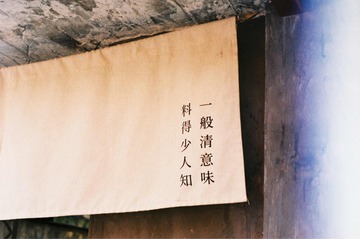 一般清意味
料得少人知